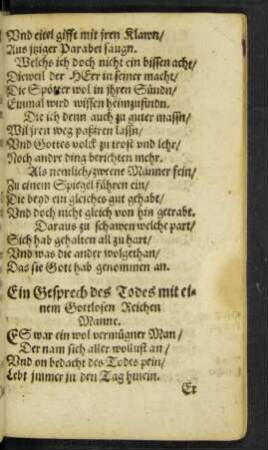 Vnd eitel gifft mit jren Klawn/
Aus jtziger Parabel saugn.
Welchs ich doch nicht ein bissen acht/
Dieweil der HErr in seiner macht/
Die Spötter wol in jhren Sündn/
Einmal wird wissen heimzusindn.
Die ich denn auch zu guter massn/
Wil jren weg passiren lassn/
Vnd Gottes volck zu trost vnd lehr/
Noch ander ding berichten mehr.
Als nemlich/ zweene Männer fein/
Zu einem Spiegel führen ein/
Die beyd ein gleiches gut gehabt/
Vnd doch nicht gleich von hin getrabt.
Daraus zu schawen welche part/
Sich hab gehalten all zu hart/
Vnd was die ander wolgethan/
Das sie Gott hab genommen an.
Ein Gesprech des Todes mit ei-
nem Gottlosen Reichen
Manne.
ES war ein wol vermügner Man/
Der nam sich aller wollust an/
Vnd on bedacht des Todes pein/
Lebt jmmer in den Tag hinein.
Er